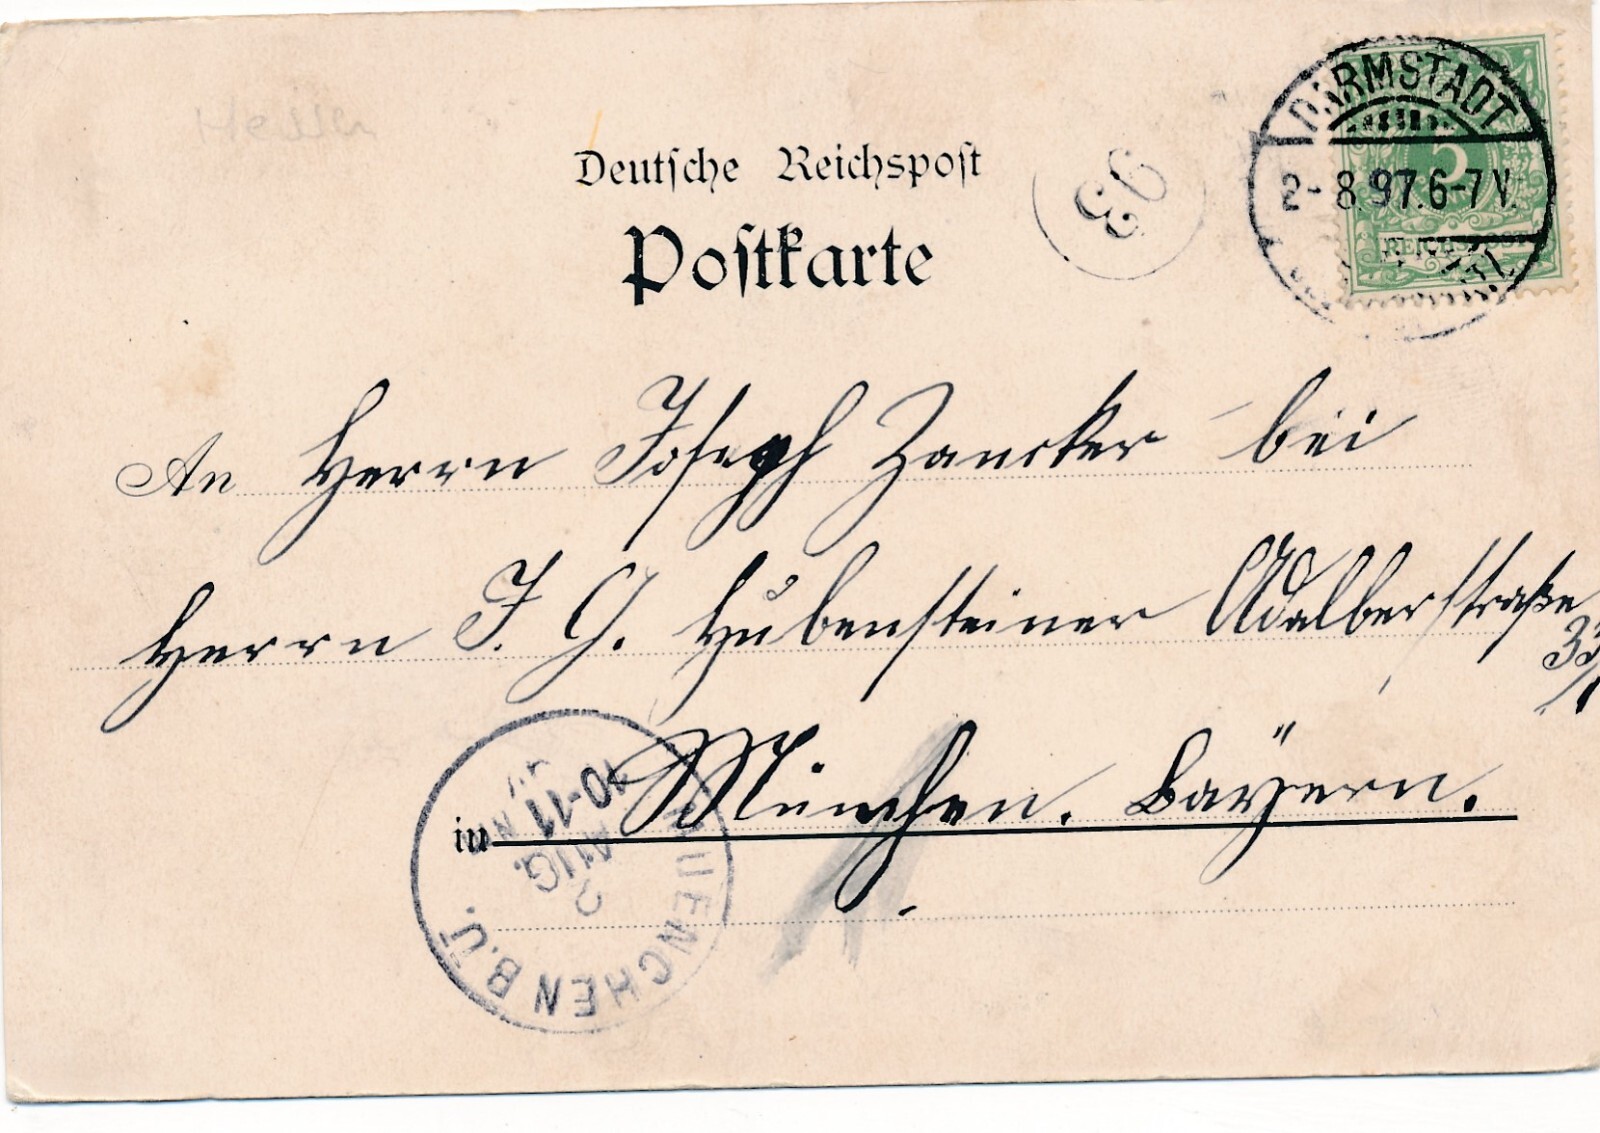 Hessen
Deutsche Reichspost
Postkarte
93
DARMSTADT
2-8.97.6-7V.
5
REICHSPOST
An Herrn Joseph Zancker bei
Herrn J. G. Hubensteiner Adalberstraße
33/1
in München. Bayern.
MUENCHEN B.U.
2
AUG.
10-11